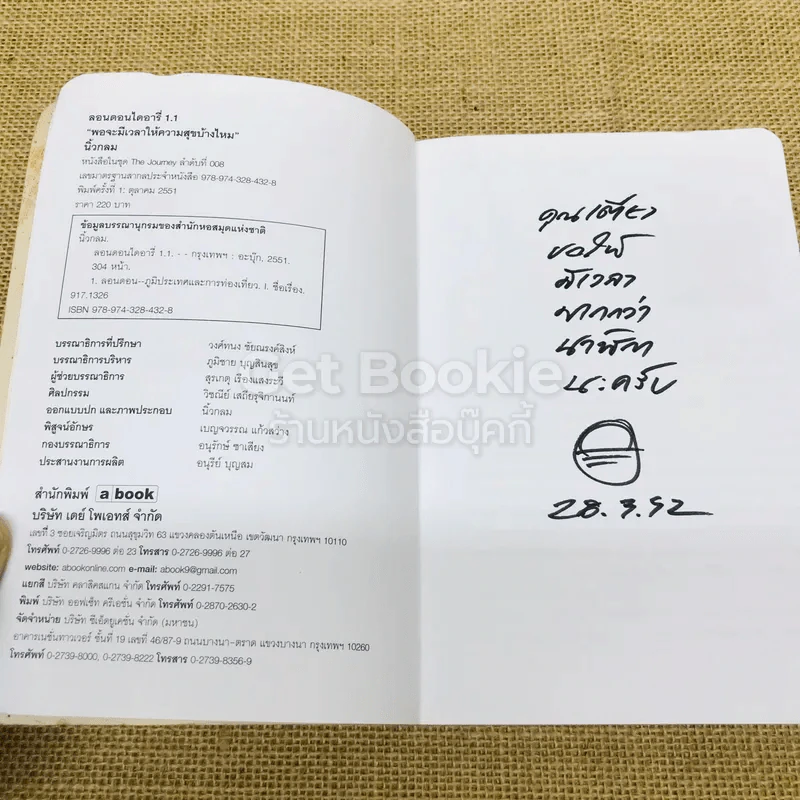 ลอนดอนไดอารี่ 1.1
"พอจะมีเวลาให้ความสุขบ้างไหม"
นิ้วกลม
หนังสือในชุด The Journey ลำดับที่ 008
เลขมาตรฐานสากลประจำหนังสือ 978-974-328-432-8
พิมพ์ครั้งที่ 1: ตุลาคม 2551
ราคา 220 บาท
ข้อมูลบรรณานุกรมของสำนักหอสมุดแห่งชาติ
นิ้วกลม.
ลอนดอนไดอารี่ 1.1. - - กรุงเทพฯ : อะบุ๊ก, 2551.
304 หน้า.
1. ลอนดอน--ภูมิประเทศและการท่องเที่ยว. I. ชื่อเรื่อง.
917.1326
ISBN 978-974-328-432-8
บรรณาธิการที่ปรึกษา วงศ์ทนง ชัยณรงค์สิงห์
บรรณาธิการบริหาร ภูมิชาย บุญสินสุข
ผู้ช่วยบรรณาธิการ สุรเกตุ เรืองแสงระวี
ศิลปกรรม วิชณีย์ เสถียรุจิกานนท์
ออกแบบปก และภาพประกอบ นิ้วกลม
พิสูจน์อักษร เบญจวรรณ แก้วสว่าง
กองบรรณาธิการ อนุรักษ์ ชาเสียง
ประสานงานการผลิต อนุรีย์ บุญสม
สำนักพิมพ์ a book
บริษัท เดย์ โพเอทส์ จำกัด
เลขที่ 3 ซอยเจริญมิตร ถนนสุขุมวิท 63 แขวงคลองตันเหนือ เขตวัฒนา กรุงเทพฯ 10110
โทรศัพท์ 0-2726-9996 ต่อ 23 โทรสาร 0-2726-9996 ต่อ 27
website: abookonline.com e-mail: abook9@gmail.com
แยกสี บริษัท คลาสิคสแกน จำกัด โทรศัพท์ 0-2291-7575
พิมพ์ บริษัท ออฟเซ็ท ครีเอชั่น จำกัด โทรศัพท์ 0-2870-2630-2
จัดจำหน่าย บริษัท ซีเอ็ดยูเคชั่น จำกัด (มหาชน)
อาคารเนชั่นทาวเวอร์ ชั้นที่ 19 เลขที่ 46/87-9 ถนนบางนา-ตราด แขวงบางนา กรุงเทพฯ 10260
โทรศัพท์ 0-2739-8000, 0-2739-8222 โทรสาร 0-2739-8356-9
คุณ
ขอให้
มีเวลา
มากกว่า
นาฬิกา
นะครับ
28.3.52
Get Bookie
ร้านหนังสือบุ๊คกี้